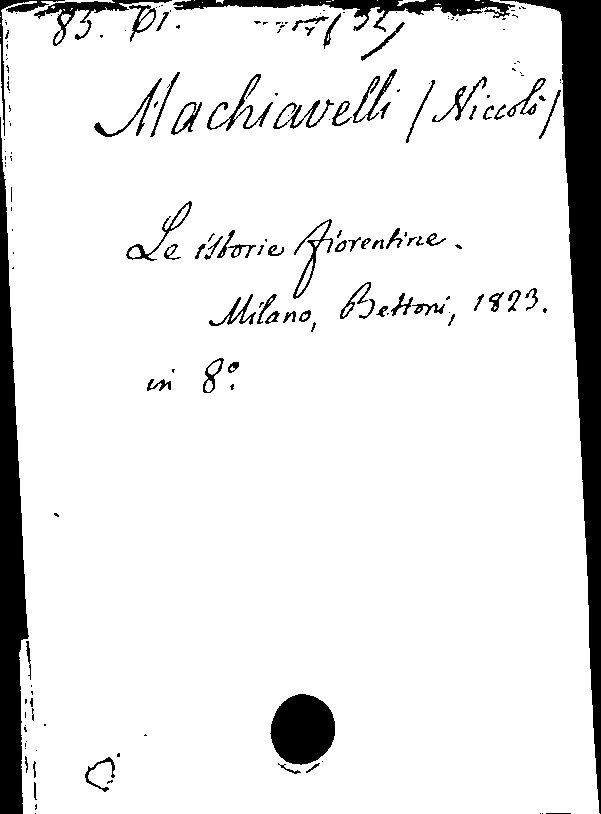 Machiavelli (Niccolò)
Le istorie fiorentine.
Milano, Bettoni, 1823.
in 8°.